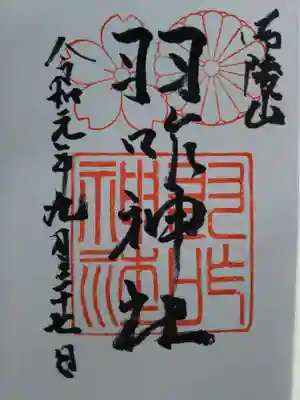 御陵山
羽咋神社
羽咋
神社
令和元年九月二十七日